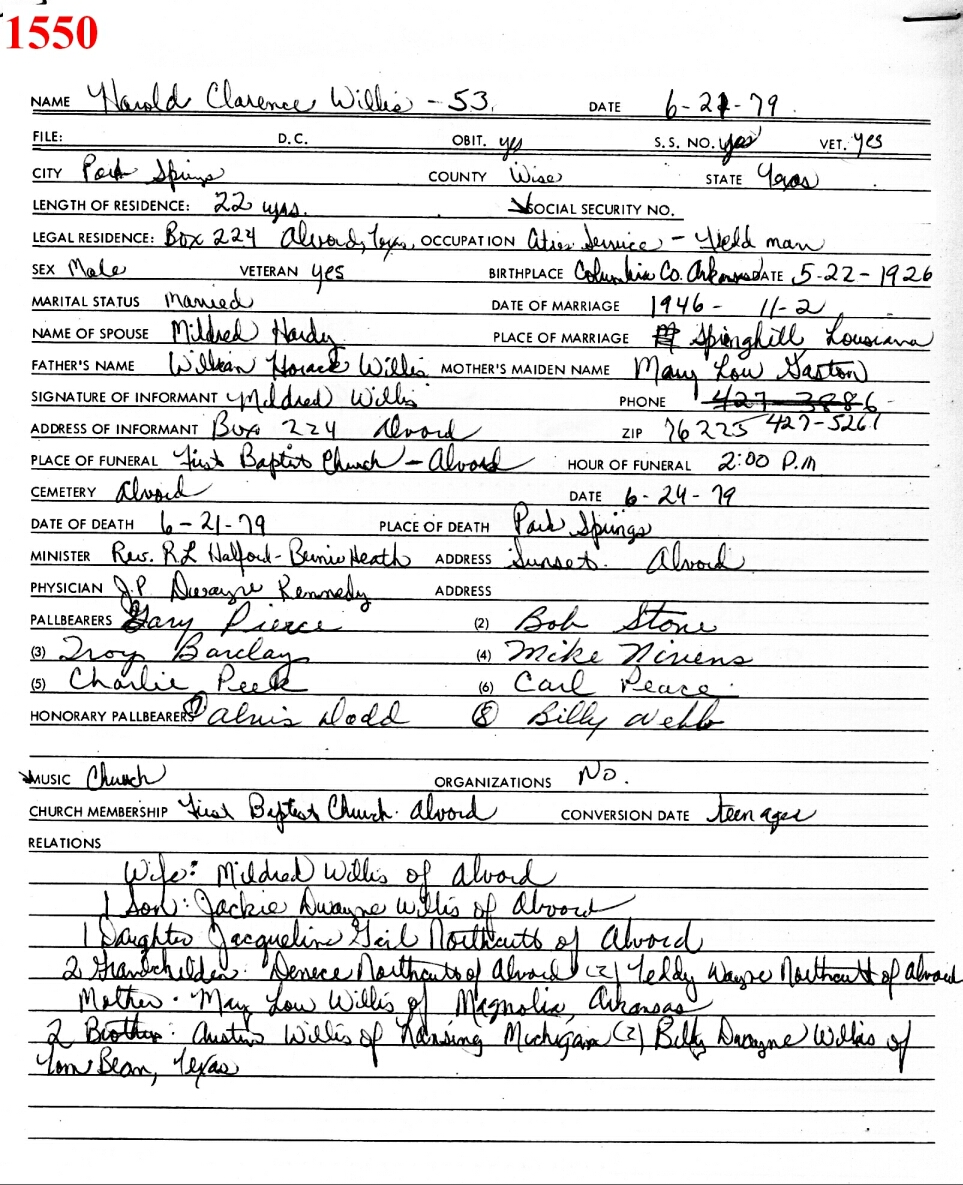 1550
NAME Harold Clarence Willis - 53. DATE 6-21-79.
FILE: D.C. OBIT. yes S.S. NO. yes VET. yes
CITY Park Springs COUNTY Wise STATE Texas
LENGTH OF RESIDENCE: 22 yrs. SOCIAL SECURITY NO.
LEGAL RESIDENCE: Box 224 Alvord, Texas OCCUPATION Cities Service - Field man
SEX Male VETERAN yes BIRTHPLACE Columbia Co. Arkansas DATE 5-22-1926
MARITAL STATUS Married DATE OF MARRIAGE 1946- 11-2
NAME OF SPOUSE Mildred Hardy PLACE OF MARRIAGE Springhill Louisiana
FATHER'S NAME William Horace Willis MOTHER'S MAIDEN NAME Mary Lou Gaston
SIGNATURE OF INFORMANT Mildred Willis PHONE 427-3886
ADDRESS OF INFORMANT Box 224 Alvord ZIP 76225 427-5261
PLACE OF FUNERAL First Baptist Church - Alvord HOUR OF FUNERAL 2:00 P.m
CEMETERY Alvord DATE 6-24-79
DATE OF DEATH 6-21-79 PLACE OF DEATH Park Springs
MINISTER Rev. RL Halford - Bernie Heath ADDRESS Sunset. Alvord
PHYSICIAN J.P. Dwayne Kennedy ADDRESS
PALLBEARERS Gary Pierce (2) Bob Stone
(3) Troy Barclay (4) Mike Nivens
(5) Charlie Peek (6) Carl Peace
HONORARY PALLBEARERS 7 Alvis Dodd 8 Billy Webb
MUSIC Church ORGANIZATIONS No.
CHURCH MEMBERSHIP First Baptist Church. Alvord CONVERSION DATE teen ager
RELATIONS
Wife: Mildred Willis of Alvord
1 Son: Jackie Dwayne Willis of Alvord
1 Daughter Jacqueline Gail Northcutt of Alvord
2 Grandchildren: Denece Northcutt of Alvord (2) Teddy Wayne Northcutt of Alvord
Mother. Mary Lou Willis of Magnolia, Arkansas
2 Brothers: Austin Willis of Lansing Michigan (2) Billy Dwayne Willis of
Tom Bean, Texas